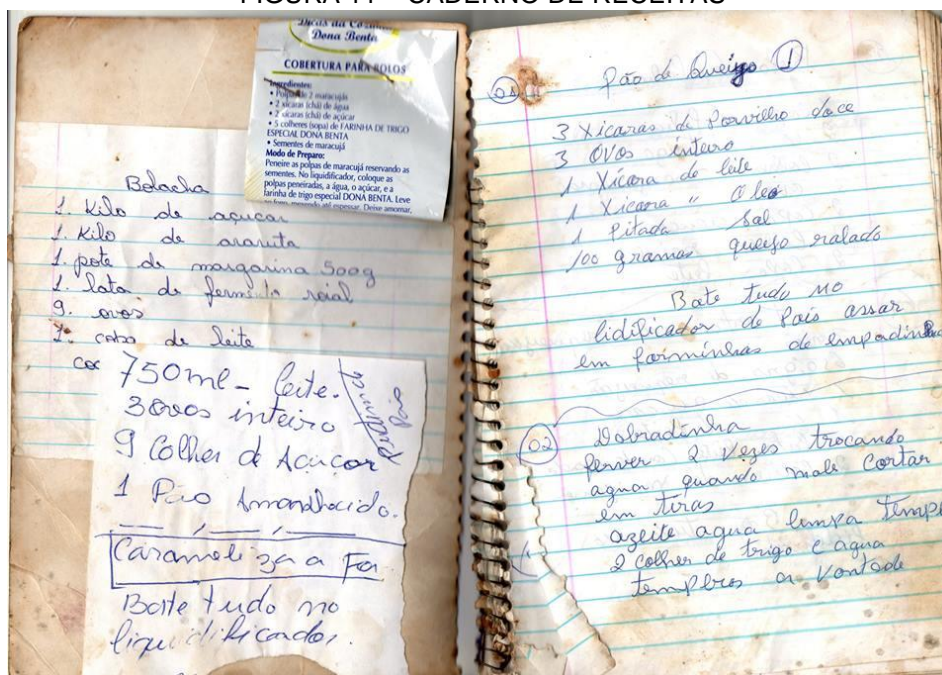 FIGURA 11 – CADERNO DE RECEITAS
Dicas da
Dona Benta
COBERTURA PARA BOLOS
Ingredientes:
• Polpa de 2 maracujás
• 2 xícaras (chá) de água
• 2 xícaras (chá) de açúcar
• 5 colheres (sopa) de FARINHA DE TRIGO
ESPECIAL DONA BENTA
• Sementes de maracujá
Modo de Preparo:
Peneire as polpas de maracujá reservando as
sementes. No liquidificador, coloque as
polpas peneiradas, a água, o açúcar, e a
farinha de trigo especial DONA BENTA. Leve
ao fogo, mexendo até espessar. Deixe amornar,
Bolacha
1. Kilo de açucar
1. Kilo de araruta
1. pote de margarina 500g
1. lata de fermento roial
9. ovos
de leite
750ml - leite.
3 ovos inteiro
9 Colher de Acucar
1 Pão Amanhecido.
Pudim
Pão
Carameliza a For
Bate tudo no
01
Pão de Queijo 1
3 Xicaras de Porvilho doce
3 OVos inteiro
1 Xicara de leite
1 Xicara " Oleo
1 Pitada Sal
100 gramas queijo ralado
Bate tudo no
lidificador de Pois assar
em forminhas de empadinha
02
Dobradinha
ferver 2 Vezes trocando
agua quando mole Cortar
em tiras
azeite agua limpa
2 colher de trigo e agua
a Vontade